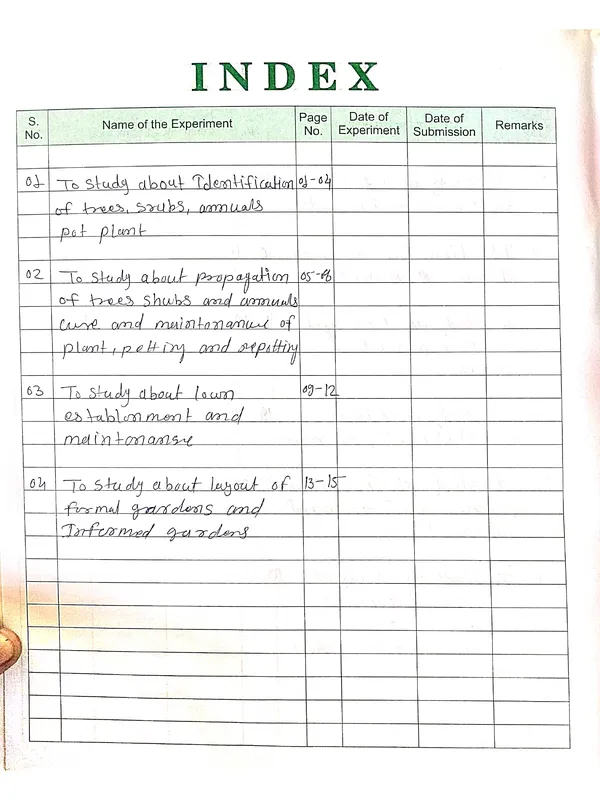 INDEX
S. No. Name of the Experiment Page No. Date of Experiment Date of Submission Remarks
01 To study about Identification 01-04
of trees, srubs, annuals
pot plant
02 To study about propagation 05-08
of trees shubs and annuals
cure and maintonance of
plant, potting and repotting
03 To study about lown 09-12
establonment and
maintonansre
04 To study about layout of 13-15
formal gardens and
Informed gardens